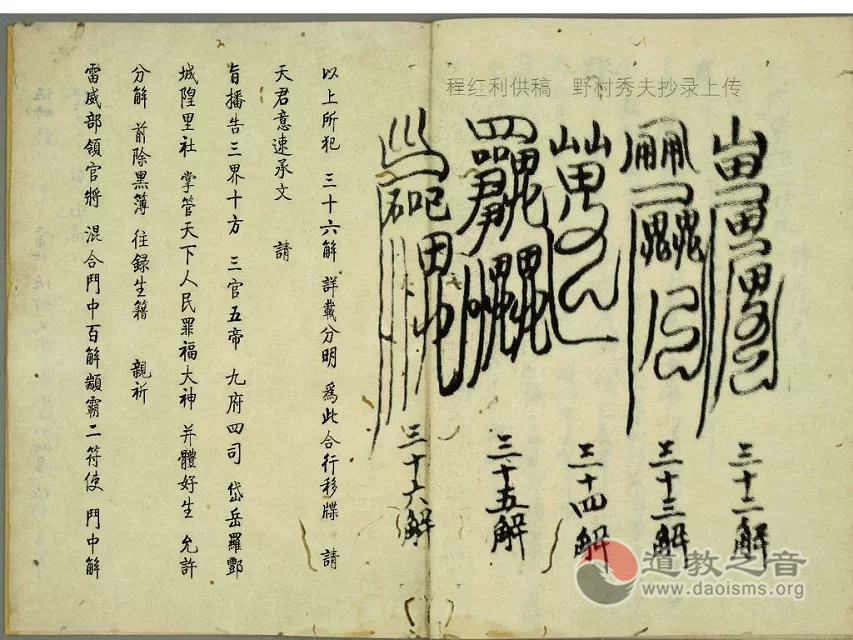 程红利供稿 野村秀夫抄录上传
三十二解
三十三解
三十四解
三十五解
三十六解
以上所犯 三十六解 詳載分明 為此合行移牒 請
天君意速承文 請
旨播告三界十方 三官五帝 九府四司 岱岳羅酆
城隍里社 掌管天下人民罪福大神 并體好生 允許
分解 前除黑簿 往録生籍 親祈
雷威部領官將 混合鬥中百解顓霸二符使 鬥中解
道教之音
www.daoisms.org